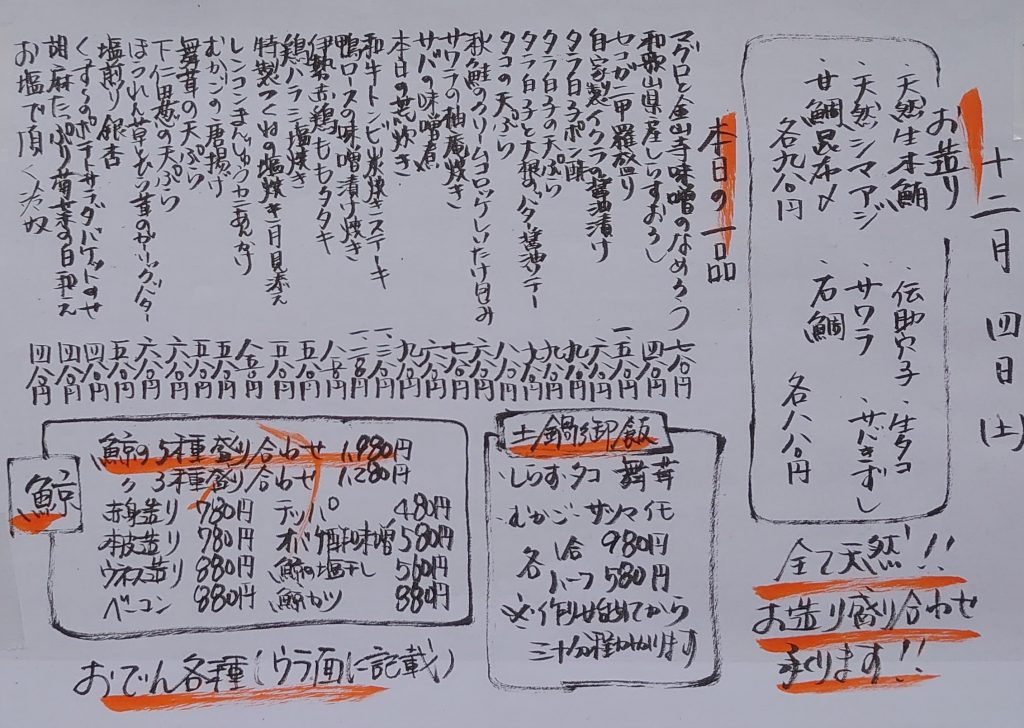 十二月 四日(土)
お造り
・天然生本鮪 ・伝助穴子 ・生タコ
・天然シマアジ ・サワラ ・サバきずし
・甘鯛昆布〆 ・石鯛
各九八〇円 各八八〇円
全て天然!!
お造り盛り合わせ
承ります!!
本日の一品
マグロと金山寺味噌のなめろう 七八〇円
和歌山県産しらすおろし 四八〇円
セコガニ甲羅盛り
自家製イクラの醤油漬け
タラ白子ポン酢
タラ白子の天ぷら
タラ白子と大根のバター醤油ソテー
タコの天ぷら
秋鮭のクリームコロッケしいたけ包み
サワラの柚庵焼き
サバの味噌煮
本日の荒炊き
和牛トンビ炭焼きステーキ
鴨ロースの味噌漬け焼き
伊勢赤鶏ももタタキ
鶏ハラミ塩焼き
特製つくねの塩焼き 月見添え
レンコンまんじゅうカニあんかけ
むかごの唐揚げ
舞茸の天ぷら 六八〇円
下仁田葱の天ぷら 六八〇円
ほうれん草としめじ茸のガーリックバター
塩煎り銀杏
くずし豆のポテトサラダバゲットのせ
胡麻たっぷり菊菜の白和え 四八〇円
お塩で頂く冷奴 四八〇円
土鍋御飯
しらす・タコ 舞茸
むかご・サツマイモ
各 1合 980円
ハーフ 580円
※作り始めてから
三十分程かかります
鯨
鯨の5種盛り合わせ 1,980円
〃 3種盛り合わせ 1,280円
赤身造り 780円 テッパ 480円
本皮造り 780円 オバケ酢味噌 580円
ウネス造り 880円 鯨の塩干し 560円
ベーコン 880円 鯨カツ 880円
おでん各種(ウラ面に記載)